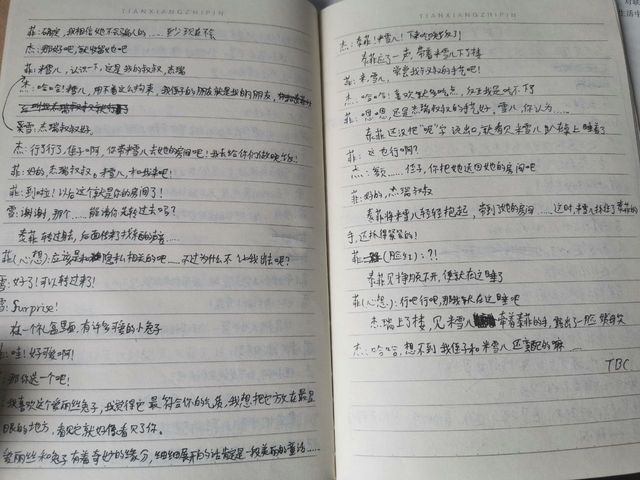 TIANXIANGZHIPIN
菲:确定,我相信她不会骗人的……至少现在不会
杰:那好吧,就收留她吧
菲:米雪儿,认识一下,这是我的叔叔,杰瑞
杰:哈哈!米雪儿,用不着这么拘束,我侄子的朋友就是我的朋友,
米雪:杰瑞叔叔好,
杰:行了行了,侄子啊,你带米雪儿去她的房间吧!我去给你们做晚饭!
菲:好的,杰瑞叔叔。米雪儿,和我来吧!
菲:到啦!以后这个就是你的房间了!
雪:谢谢,那个……能请你先转过去吗?
泰菲转过去,后面传来了找东西的声音……
菲(心想):应该是和隐私相关的吧……不过为什么不让我出去呢?
雪:好了!可以转过来了!
雪:Surprise!
在一个礼盒里面,有许多可爱的小兔子
:哇!好可爱啊!
:那你选一个吧!
:我喜欢这个爱丽丝兔子,我觉得它最符合你的气质,我想把它放在最显
眼的地方,看见它就好像看见了你。
爱丽丝和兔子有着奇妙的缘分,细细展开的话肯定是一段美丽的童话……
TIANXIANGZHIPIN
杰:泰菲!米雪儿!下来吃晚饭了!
泰菲应了一声,带着米雪儿下了楼
菲:米雪儿,尝尝我叔叔的手艺吧!
杰:哈哈!喜欢就多吃点,反正我是吃不下
菲:嗯嗯,还是杰瑞叔叔的手艺好,雪儿,你认为……
泰菲还没把"呢"字说出口,就看见米雪儿趴在桌上睡着了
菲:这也行啊?
杰:额……侄子,你把她送回她的房间吧
菲:好的,杰瑞叔叔
泰菲将米雪儿轻轻抱起,带到她的房间……这时,米雪儿抓住了泰菲的
手,还抓得紧紧的!
菲:(脸红):?!
泰菲见挣脱不开,便就在这睡了
菲(心想):行吧行吧,那我就在这睡吧
杰瑞上了楼,见米雪儿牵着泰菲的手,露出了一脸
杰:哈哈,想不到我侄子和米雪儿还蛮配的嘛……
TBC
生活中